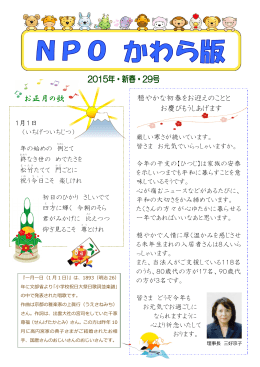 NPO かわら版
2015年・新春・29号
お正月の歌
1月1日
(いちげついちじつ)
年の始めの 例とて
終なき世の めでたさを
松竹たてて 門ごとに
祝う今日こそ 楽しけれ
初日のひかり さしいでて
四方に輝く 今朝のそら
君がみかげに 比えつつ
仰ぎ見るこそ 尊とけれ
『一月一日(1月1日)』は、1893(明治26)
年に文部省より「小学校祝日大祭日歌詞並楽譜」
の中で発表された唱歌です。
穏やかな初春をお迎えのことと
お慶びもうしあげます
厳しい寒さが続いています。
皆さま お元気でいらっしゃいますか。
今年の干支の【ひつじ】は家族の安泰
を示しいつまでも平和に暮らすことを意
味しているそうです。
心が痛むニュースなどがあるたびに、
平和の大切さをかみ締めています。
たくさんの方々が心休かれる
穏やかで人情に厚く温かみを感じさせ
る未年生まれの入居者さんは8人いらっ
しゃいます。
また、当法人がご支援している118名
のうち、80歳代の方が17名、90歳代の
方が3名になりました。
皆さま どうぞ今年も
お元気でお過ごしに
なられますように
心より祈念いたして
おります。
理事長 三好京子